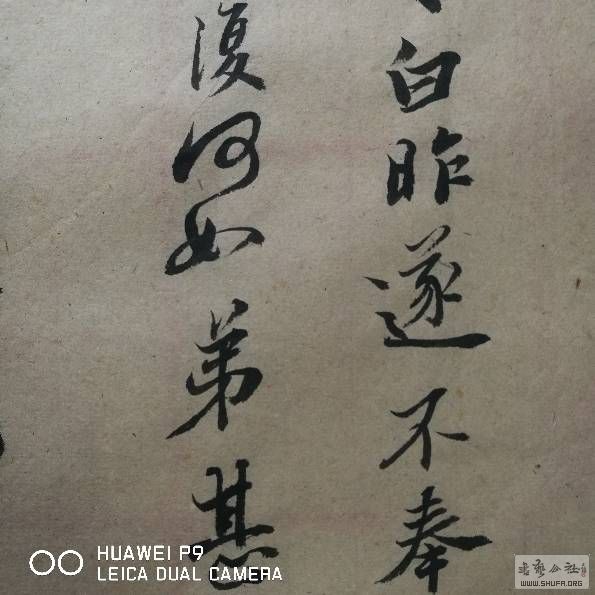 白昨遂不奉
復何如弟甚
HUAWEI P9
LEICA DUAL CAMERA
书艺公社
WWW.SHUFA.ORG